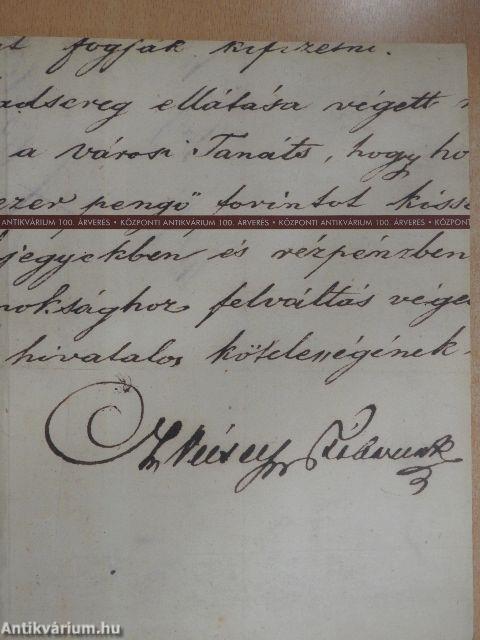 fogják kifizetni.
ellátása végett
a városi Tanáts, hogy ho
ezer pengő forintot kisse
ANTIKVÁRIUM 100. ÁRVERÉS • KÖZPONTI ANTIKVÁRIUM 100. ÁRVERÉS • KÖZPONTI ANTIKVÁRIUM 100. ÁRVERÉS • KÖZPONTI
jegyekben és rézpénzben
noksághoz felváltás vége
hivatalos kötelességének
Antikvárium.hu
Antikvárium.hu